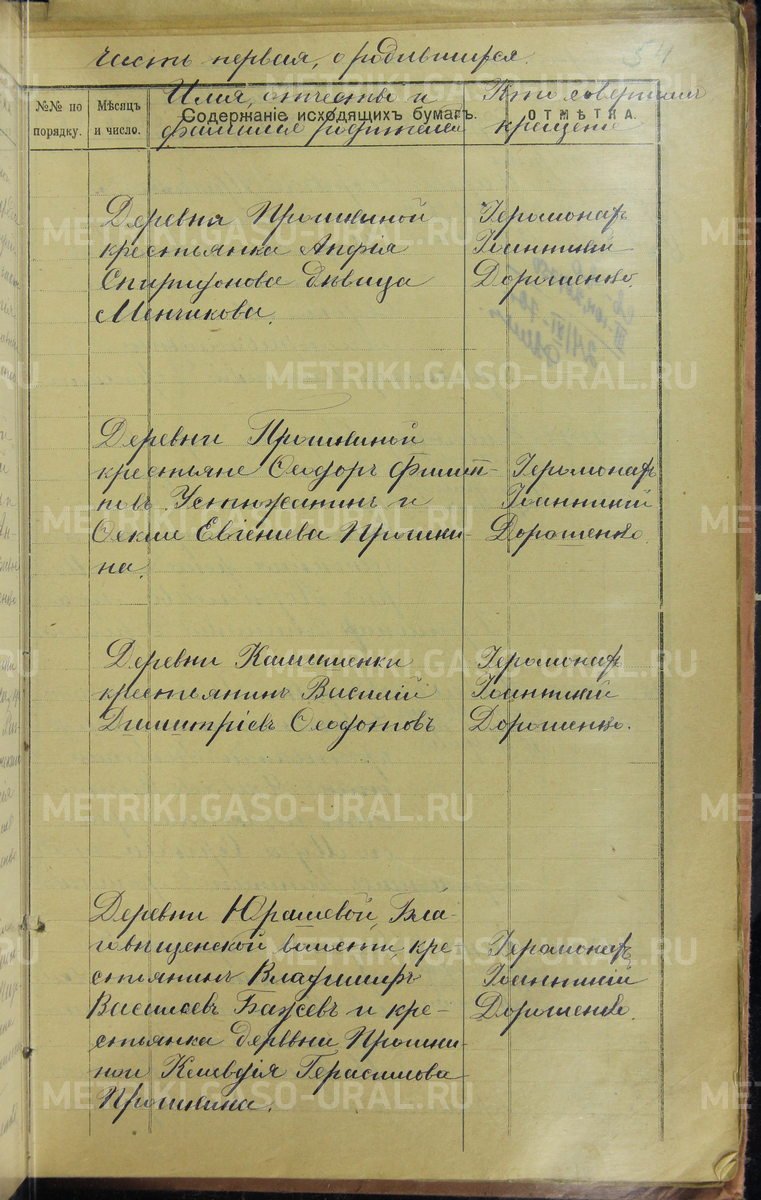 Часть первая, о родившихся.
54
№№ по порядку.
Мѣсяцъ и число.
Содержаніе исходящихъ бумагъ.
ОТМѢТКА.
Имя, отчество и
фамилія родителей
Кто совершилъ
крещеніе
Деревня Прошкиной
крестьянка Апфія
Спиридонова дѣвица
Менчикова.
Іеромонах
Іоанникій
Дорошенко.
Деревни Прошкиной
крестьяне Ѳеодоръ Филип-
повъ Устюжанинъ и
Ѳекла Евгеніева Прошки-
на.
Іеромонах
Іоанникій
Дорошенко.
Деревни Камышенки
крестьянинъ Василій
Димитріевъ Ѳедотовъ
Іеромонах
Іоанникій
Дорошенко.
Деревни Юрашевой, Бла-
говѣщенской волости, кре-
стьянинъ Владимиръ
Васильевъ Бажевъ и кре-
стьянка деревни Прошки-
ной Клавдія Герасимова
Прошкина.
Іеромонахъ
Іоанникій
Дорошенко.
METRIKI.GASO-URAL.RU